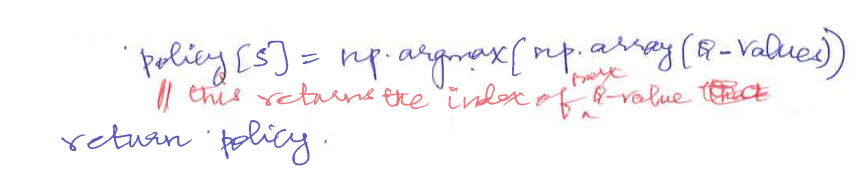 policy[s] = np.argmax(np.array(Q-values))
// this returns the index of max Q-value
return policy.